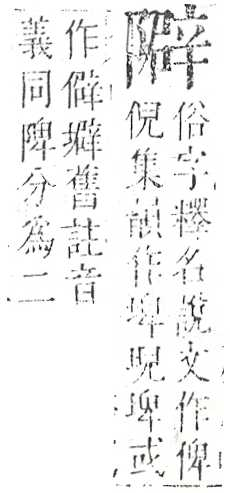 隦
俗字釋名說文作俾
倪集韻作埤堄埤或
作僻壀舊註音
義同陴分為二